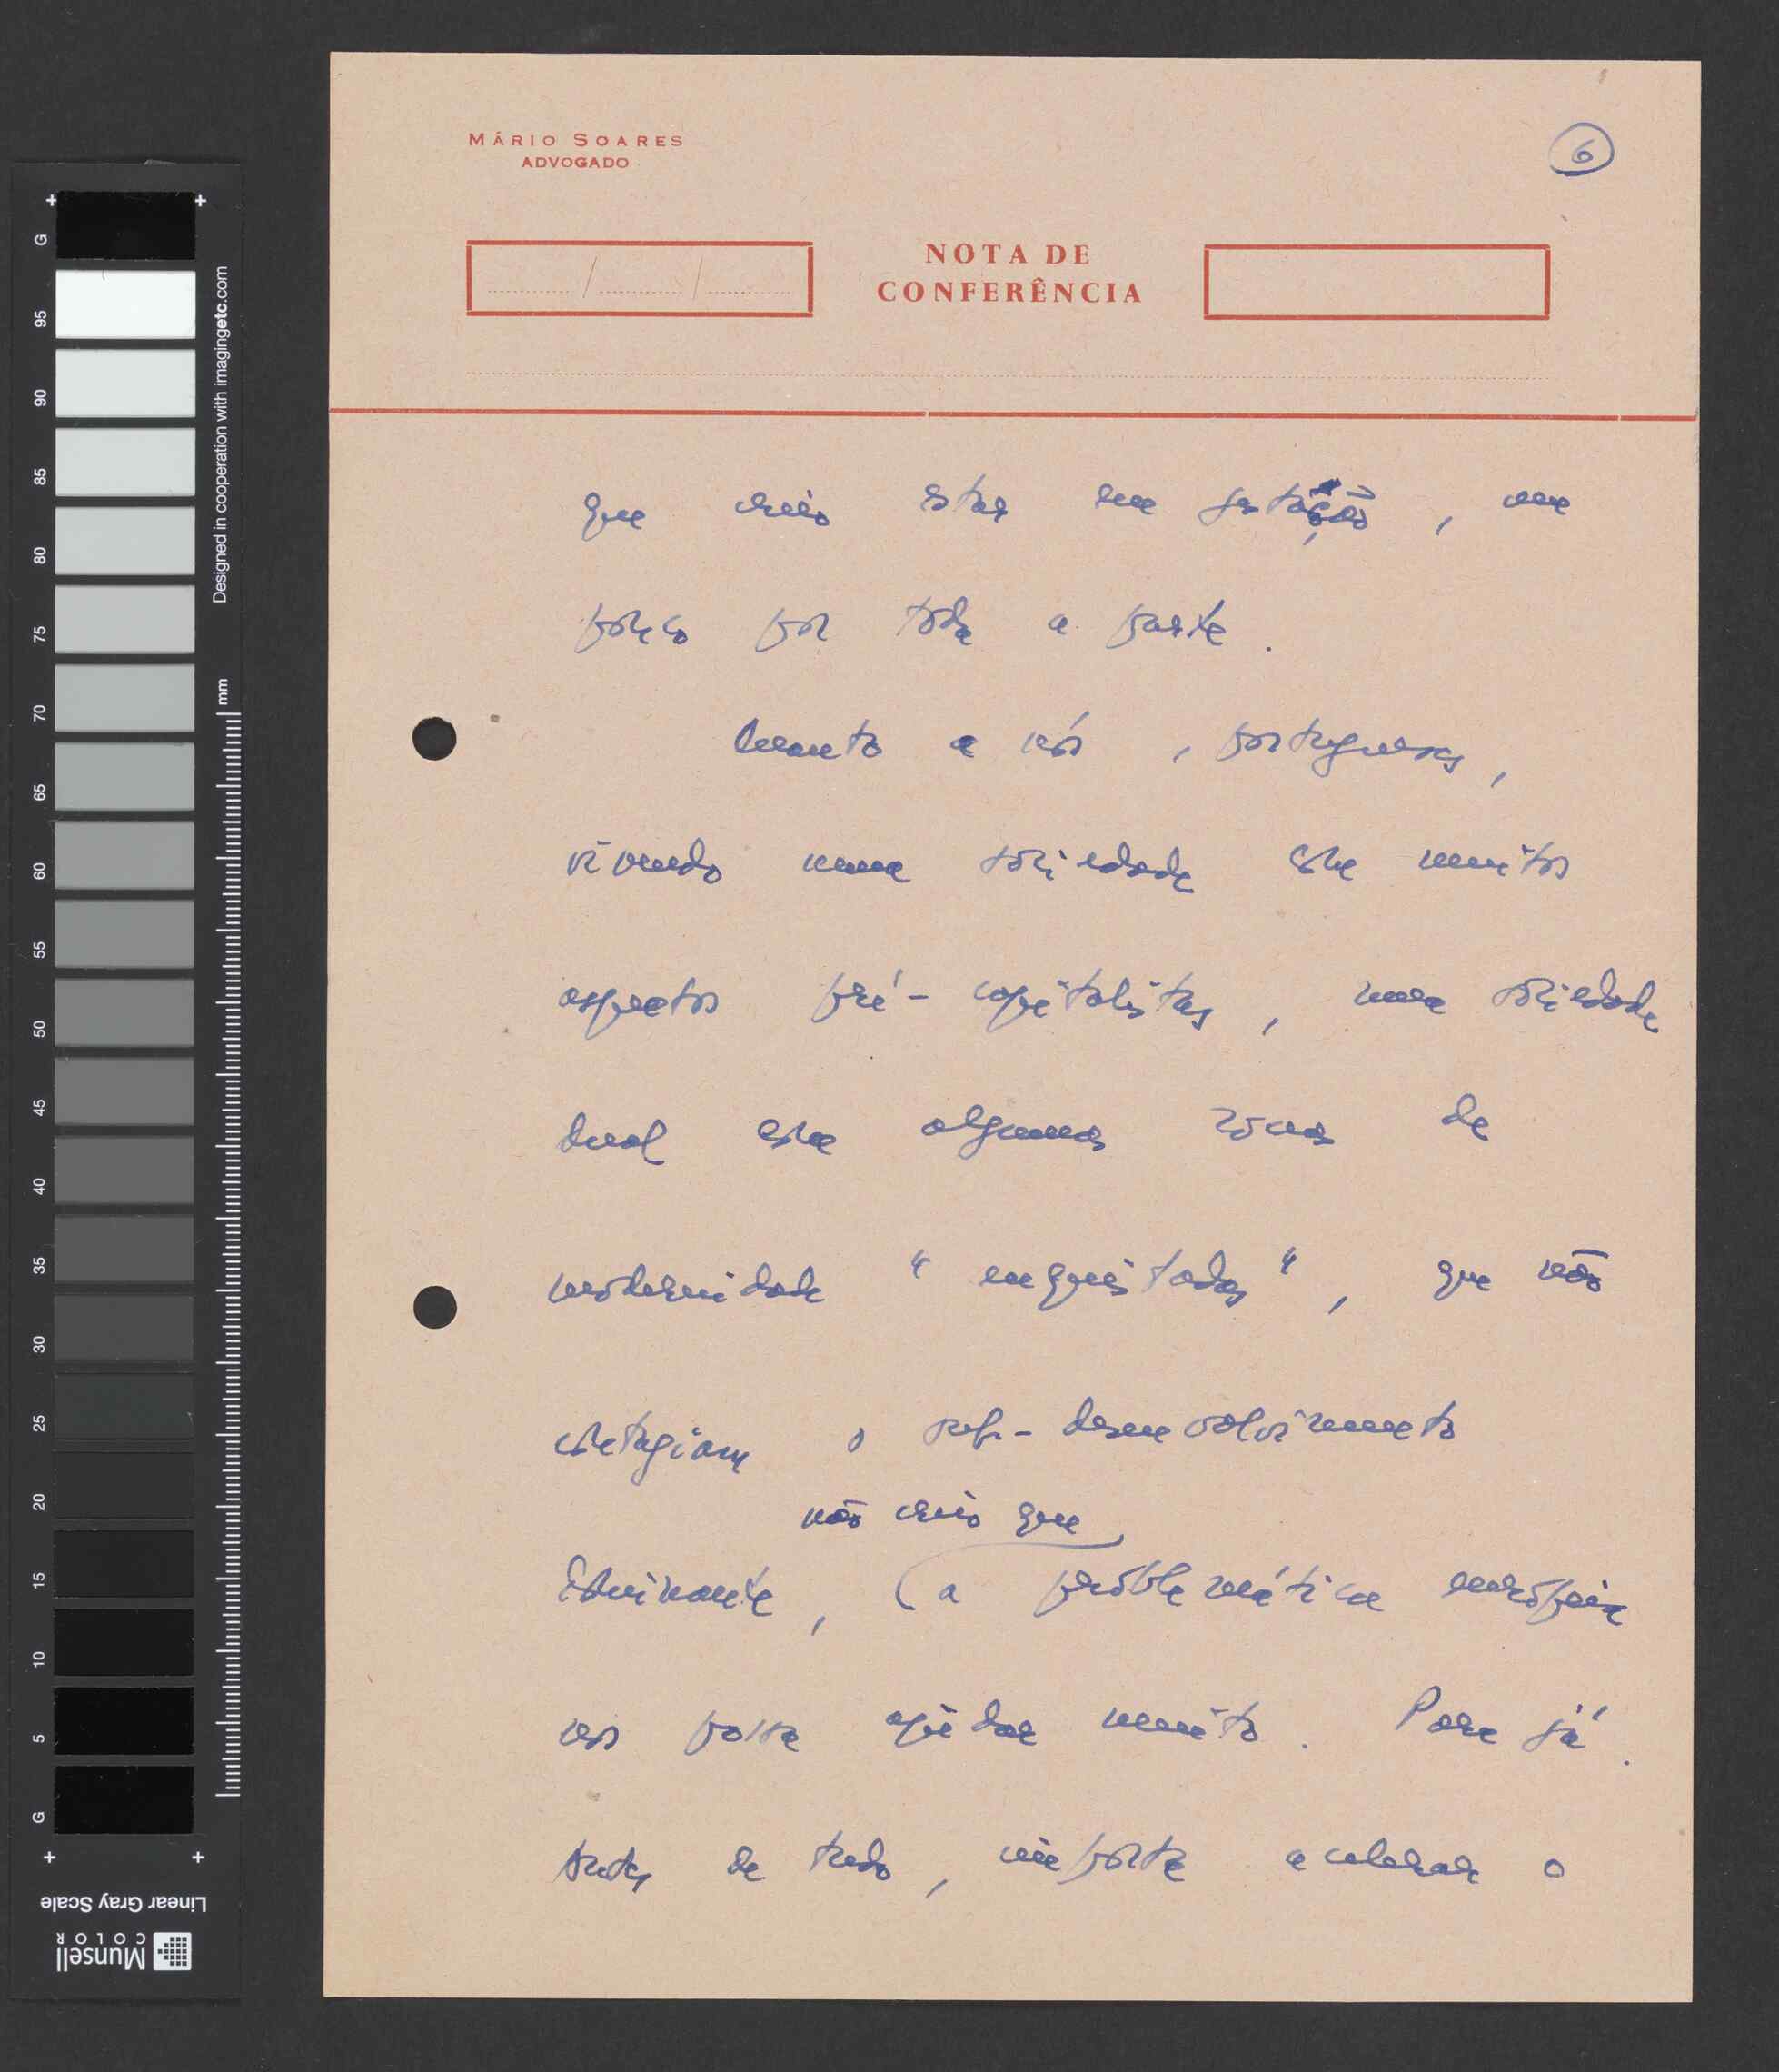 MÁRIO SOARES
ADVOGADO
6
NOTA DE
CONFERÊNCIA
que creio estar em gestação, um
pouco por toda a parte.
Quanto a nós, portugueses,
vivendo numa sociedade com muitos
aspectos pré-capitalistas, uma sociedade
dual com algumas zonas de
modernidade "enquistadas", que não
contagiam o sub-desenvolvimento
não creio que
dominante, (a problemática europeia
nos possa ajudar muito. Para já.
Antes de tudo, importa acelerar o
G
95
90
85
80
75
70
65
60
55
50
45
40
35
30
25
20
15
10
5
G
Designed in cooperation with imagingetc.com
mm
Linear Gray Scale
Munsell
COLOR